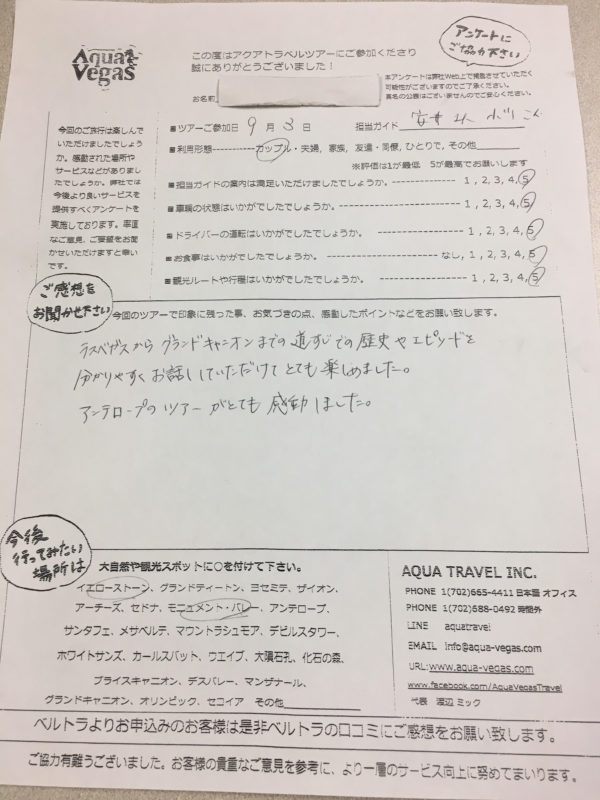 Aqua Vegas
この度はアクアトラベルツアーにご参加くださり
誠にありがとうございました！
アンケートに
ご協力下さい
お名前
本アンケートは弊社Web上で掲載させていただく
可能性がございますのでご了承ください。
実名の公表はございませんのでご安心ください。
今回のご旅行は楽しんで
いただけましたでしょう
か。感動された場所や
サービスなどがありまし
たでしょうか。弊社では
今後より良いサービスを
提供すべくアンケートを
実施しております。率直
なご意見、ご要望をお聞
かせいただけますと幸い
です。
■ツアーご参加日 9 月 3 日 担当ガイド
■利用形態-----------カップル・夫婦, 家族, 友達・同僚, ひとりで, その他
※評価は1が最低 5が最高でお願いします
■担当ガイドの案内は満足いただけましたでしょうか。------------ 1 , 2, 3, 4, 5
■車輌の状態はいかがでしたでしょうか。------------------------ 1 , 2, 3, 4, 5
■ドライバーの運転はいかがでしたでしょうか。------------------ 1 , 2, 3, 4, 5
■お食事はいかがでしたでしょうか。-------------------- なし, 1, 2, 3, 4, 5
■観光ルートや行程はいかがでしたでしょうか。------------------ 1, 2, 3, 4, 5
ご感想を
お聞かせ下さい
今回のツアーで印象に残った事、お気づきの点、感動したポイントなどをお願い致します。
ラスベガスからグランドキャニオンまでの道すじでの歴史やエピソードを
分かりやすくお話ししていただけてとても楽しめました。
アンテロープのツアーがとても感動しました。
今後
行ってみたい
場所は
大自然や観光スポットに○を付けて下さい。
イエローストーン、グランドティートン、ヨセミテ、ザイオン、
アーチーズ、セドナ、モニュメント・バレー、アンテロープ、
サンタフェ、メサベルデ、マウントラシュモア、デビルスタワー、
ホワイトサンズ、カールスバット、ウエイブ、大隕石孔、化石の森、
ブライスキャニオン、デスバレー、マンザナール、
グランドキャニオン、オリンピック、セコイア その他
AQUA TRAVEL INC.
PHONE 1(702)665-4411 日本語 オフィス
PHONE 1(702)688-0492 時間外
LINE aquatravel
EMAIL info@aqua-vegas.com
URL:www.aqua-vegas.com
www.facebook.com/AquaVegasTravel
代表 渡辺 ミック
ベルトラよりお申込みのお客様は是非ベルトラの口コミにご感想をお願い致します。
ご協力有難うございました。お客様の貴重なご意見を参考に、より一層のサービス向上に努めてまいります。